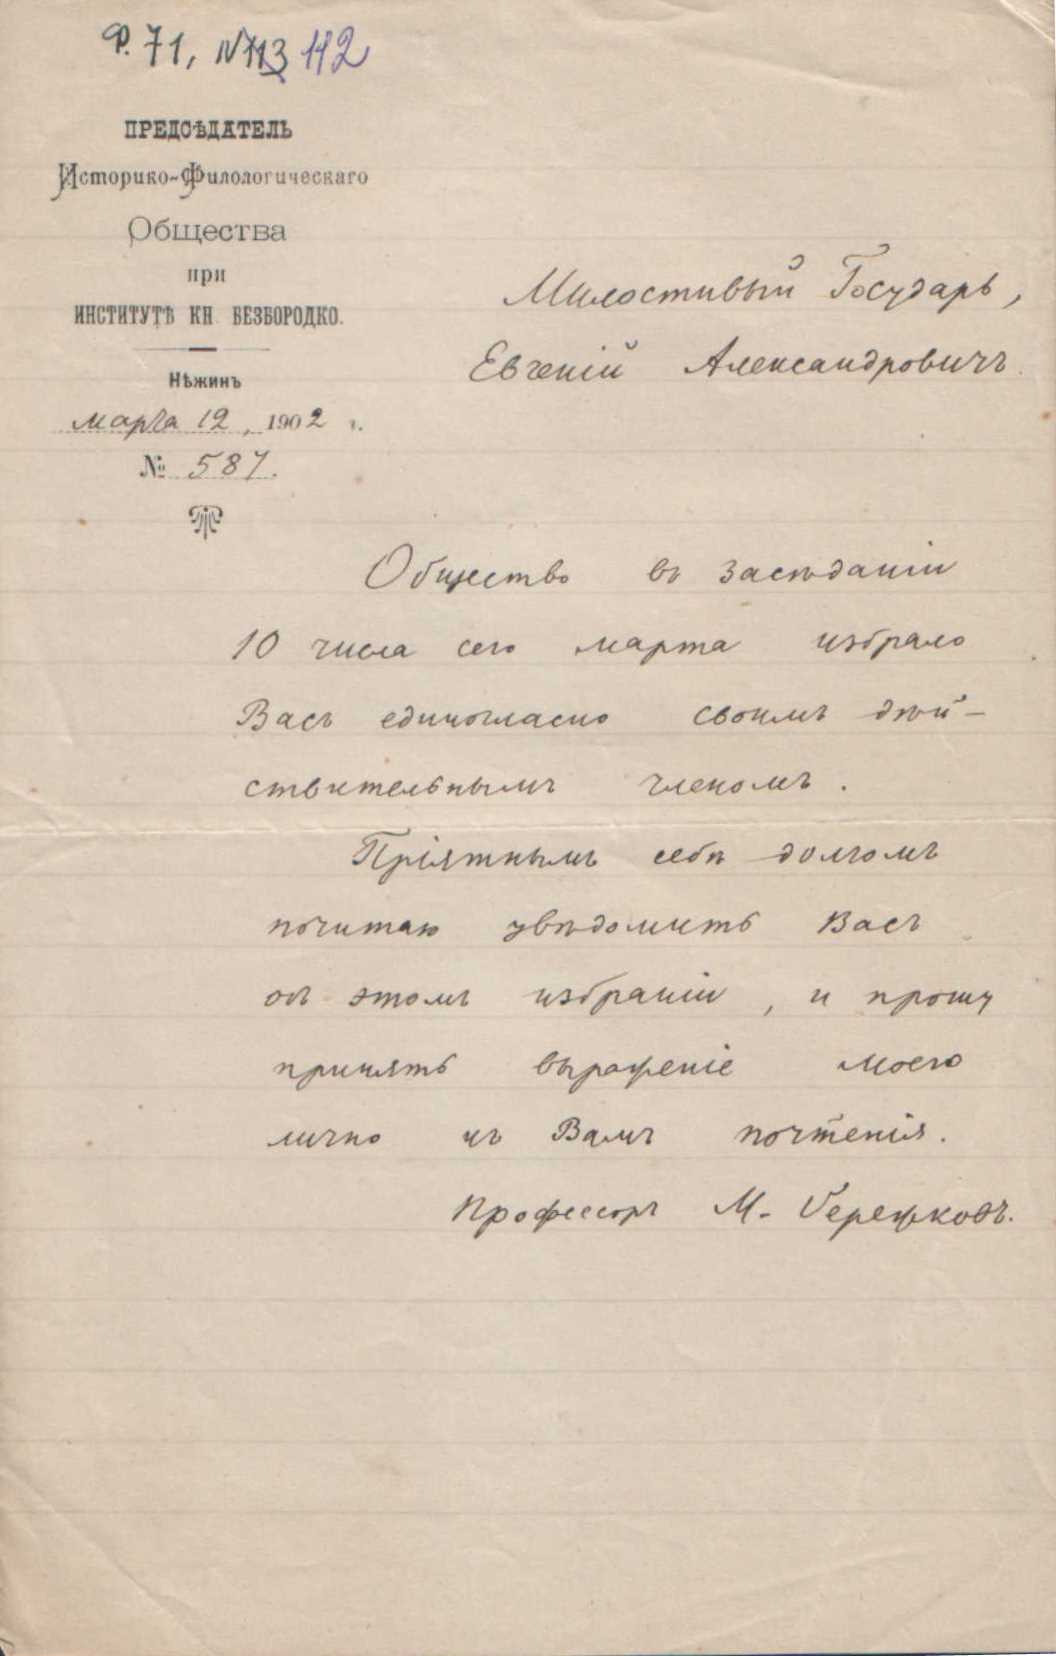 Ф. 71, №113 112
ПРЕДСѢДАТЕЛЬ
Историко-Филологическаго
Общества
при
ИНСТИТУТѢ КН. БЕЗБОРОДКО.
Нѣжинъ
марта 12, 1902 г.
№ 587.
Милостивый Государь,
Евгеній Александровичъ.
Общество въ засѣданіи
10 числа сего марта избрало
Васъ единогласно своимъ дѣй-
ствительнымъ членомъ.
Пріятнымъ себѣ долгомъ
почитаю увѣдомить Васъ
объ этомъ избраніи, и прошу
принять выраженіе моего
лично къ Вамъ почтенія.
Профессоръ М. Бережковъ.